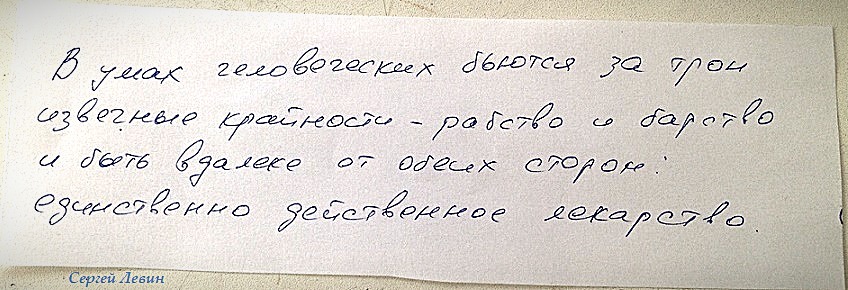 В умах человеческих бьются за трон
извечные крайности - рабство и барство
и быть вдалеке от обеих сторон:
единственно действенное лекарство.
Сергей Левин